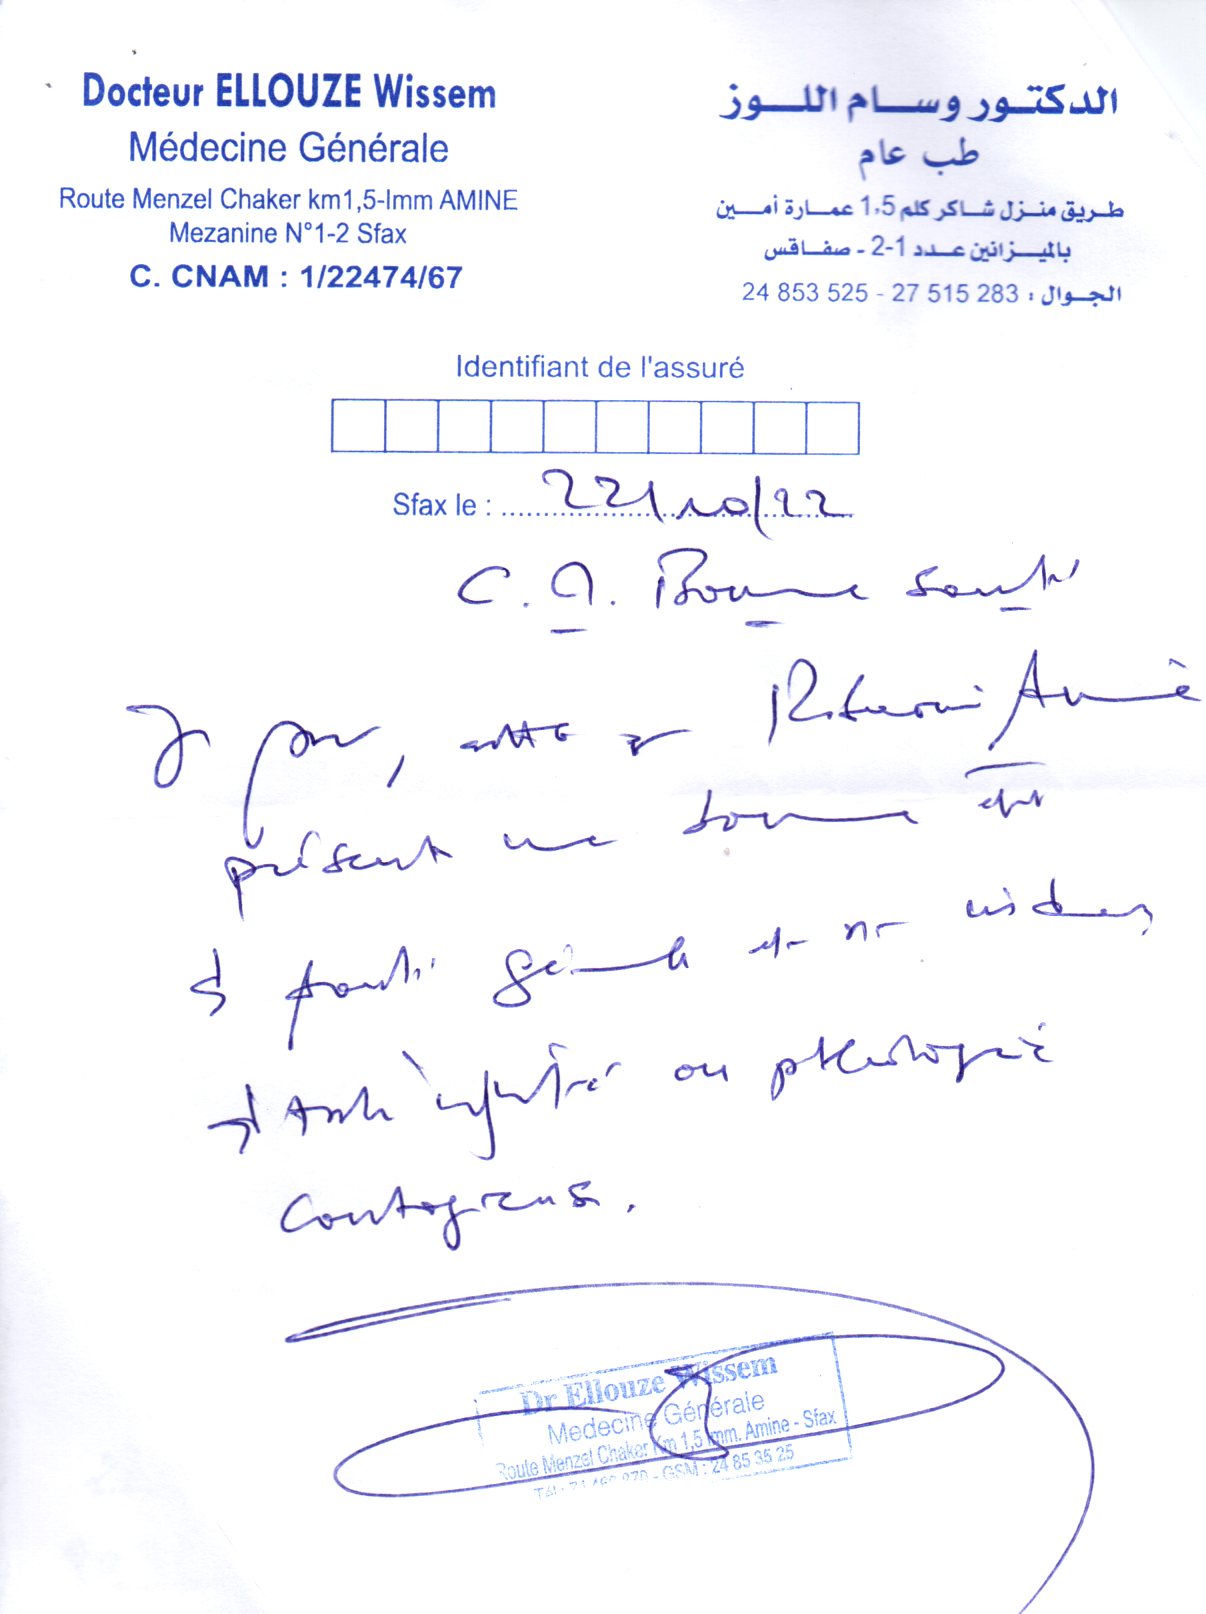 Docteur ELLOUZE Wissem
Médecine Générale
Route Menzel Chaker km1,5-Imm AMINE
Mezanine N°1-2 Sfax
C. CNAM : 1/22474/67
الدكتور وسام اللوز
طب عام
طريق منزل شاكر كلم 1,5 عمارة أمين
بالميزانين عدد 1-2 - صفاقس
الجوال : 283 515 27 - 525 853 24
Identifiant de l'assuré
Sfax le : 22/10/22
C. Bonne santé
Je
présente une bonne
santé générale et
ou pathologie
contagieuse.
Dr Ellouze Wissem
Medecine Générale
Route Menzel Chaker Km 1,5 Imm. Amine - Sfax
GSM : 24 85 35 25